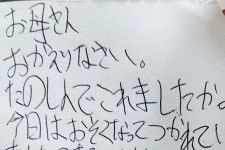 お母さん
おかえりなさい。
たのしんでこれましたか。
今日はおそくなってつかれてい